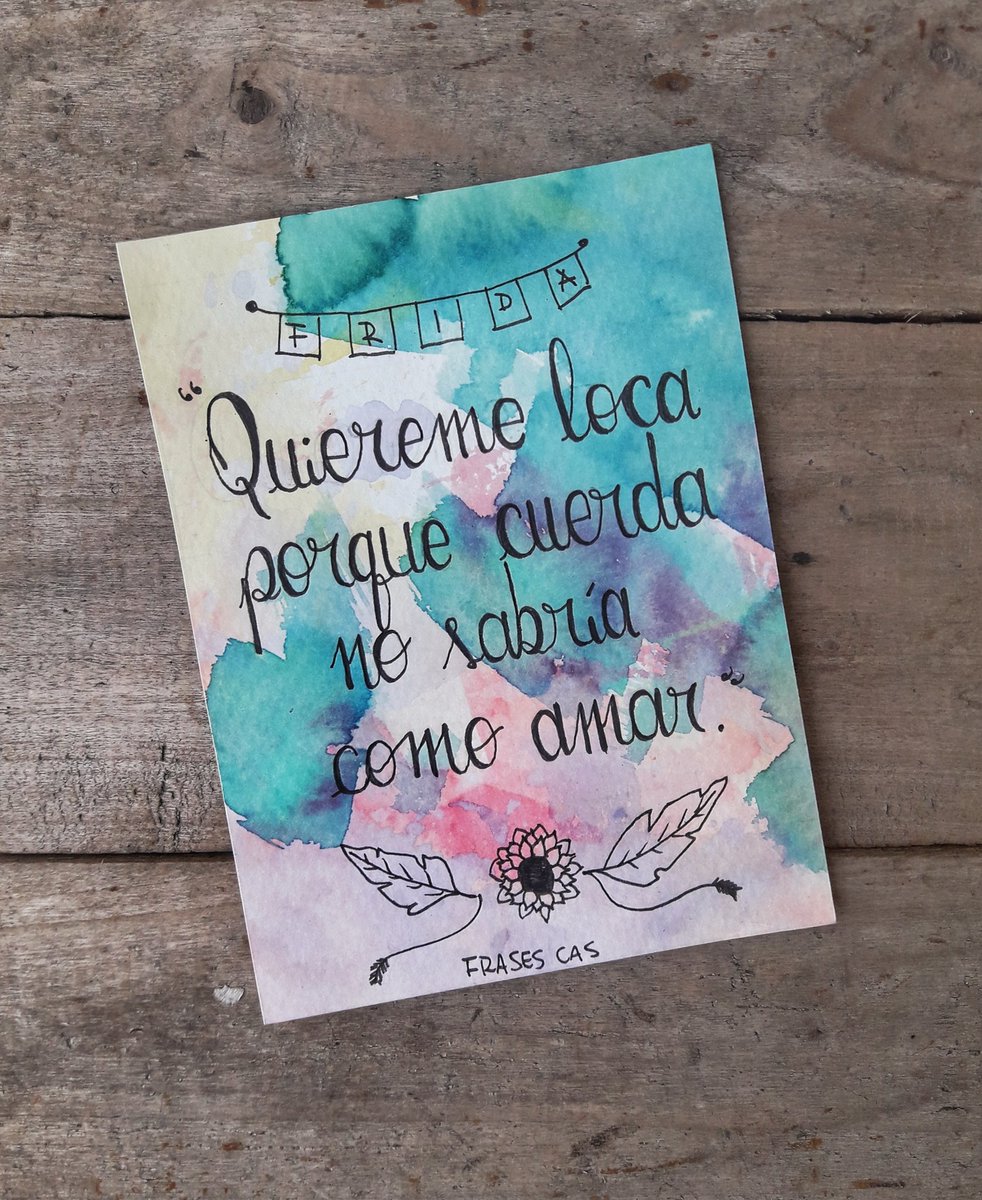 FRIDA
“Quiereme loca
porque cuerda
no sabría
como amar.”
FRASES CAS